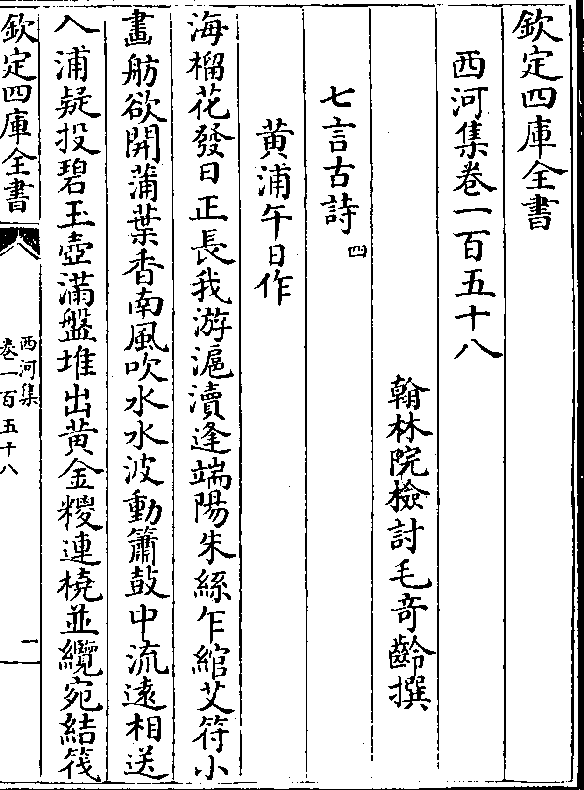 欽定四庫全書
西河集卷一百五十八
翰林院檢討毛奇齡撰
七言古詩四
黄浦午日作
海榴花發日正長我游滬瀆逢端陽朱絲乍綰艾符小
畫舫欲開蒲葉香南風吹水水波動簫鼓中流遠相送
入浦疑投碧玉壺滿盤堆出黄金糉連橈並纜宛結筏
欽定四庫全書
西河集
卷一百五十八
一